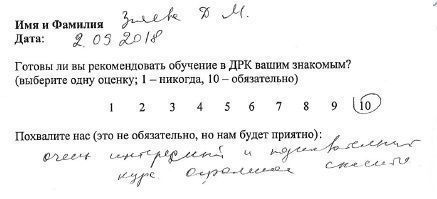 Имя и Фамилия Зиева Д М.
Дата: 2.09.2018
Готовы ли вы рекомендовать обучение в ДРК вашим знакомым?
(выберите одну оценку; 1 – никогда, 10 – обязательно)
1 2 3 4 5 6 7 8 9 10
Похвалите нас (это не обязательно, но нам будет приятно):
очень интересный и познавательный
курс огромное спасибо